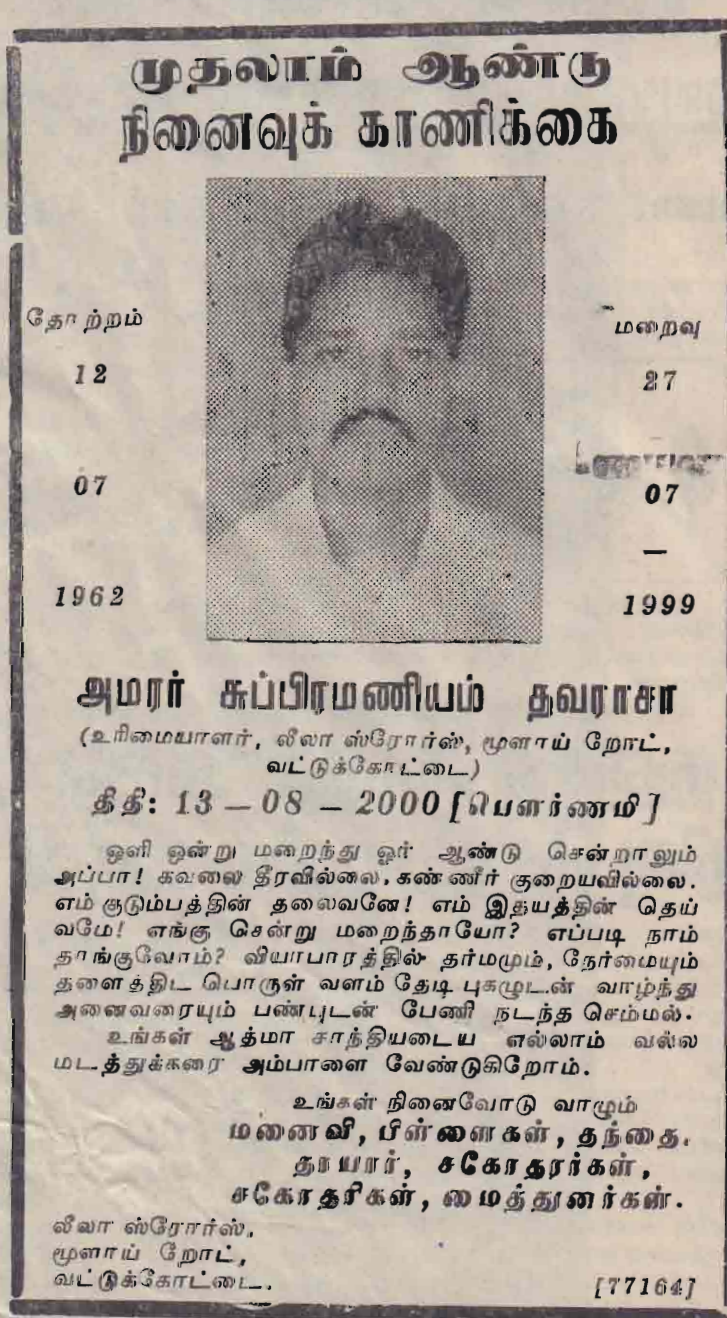 முதலாம் ஆண்டு
நினைவுக் காணிக்கை
தோற்றம்
12
07
1962
மறைவு
27
07
—
1999
அமரர் சுப்பிரமணியம் தவராசா
(உரிமையாளர், லீலா ஸ்ரோர்ஸ், மூளாய் றோட்,
வட்டுக்கோட்டை)
திதி: 13 — 08 — 2000 [பௌர்ணமி]
ஒளி ஒன்று மறைந்து ஓர் ஆண்டு சென்றாலும்
அப்பா! கவலை தீரவில்லை. கண்ணீர் குறையவில்லை.
எம் குடும்பத்தின் தலைவனே! எம் இதயத்தின் தெய்
வமே! எங்கு சென்று மறைந்தாயோ? எப்படி நாம்
தாங்குவோம்? வியாபாரத்தில் தர்மமும், நேர்மையும்
தளைத்திட பொருள் வளம் தேடி புகழுடன் வாழ்ந்து
அனைவரையும் பண்புடன் பேணி நடந்த செம்மல்.
உங்கள் ஆத்மா சாந்தியடைய எல்லாம் வல்ல
மடத்துக்கரை அம்பாளை வேண்டுகிறோம்.
உங்கள் நினைவோடு வாழும்
மனைவி, பிள்ளைகள், தந்தை.
தாயார், சகோதரர்கள்,
சகோதரிகள், மைத்துனர்கள்.
லீலா ஸ்ரோர்ஸ்,
மூளாய் றோட்,
வட்டுக்கோட்டை.
[77164]